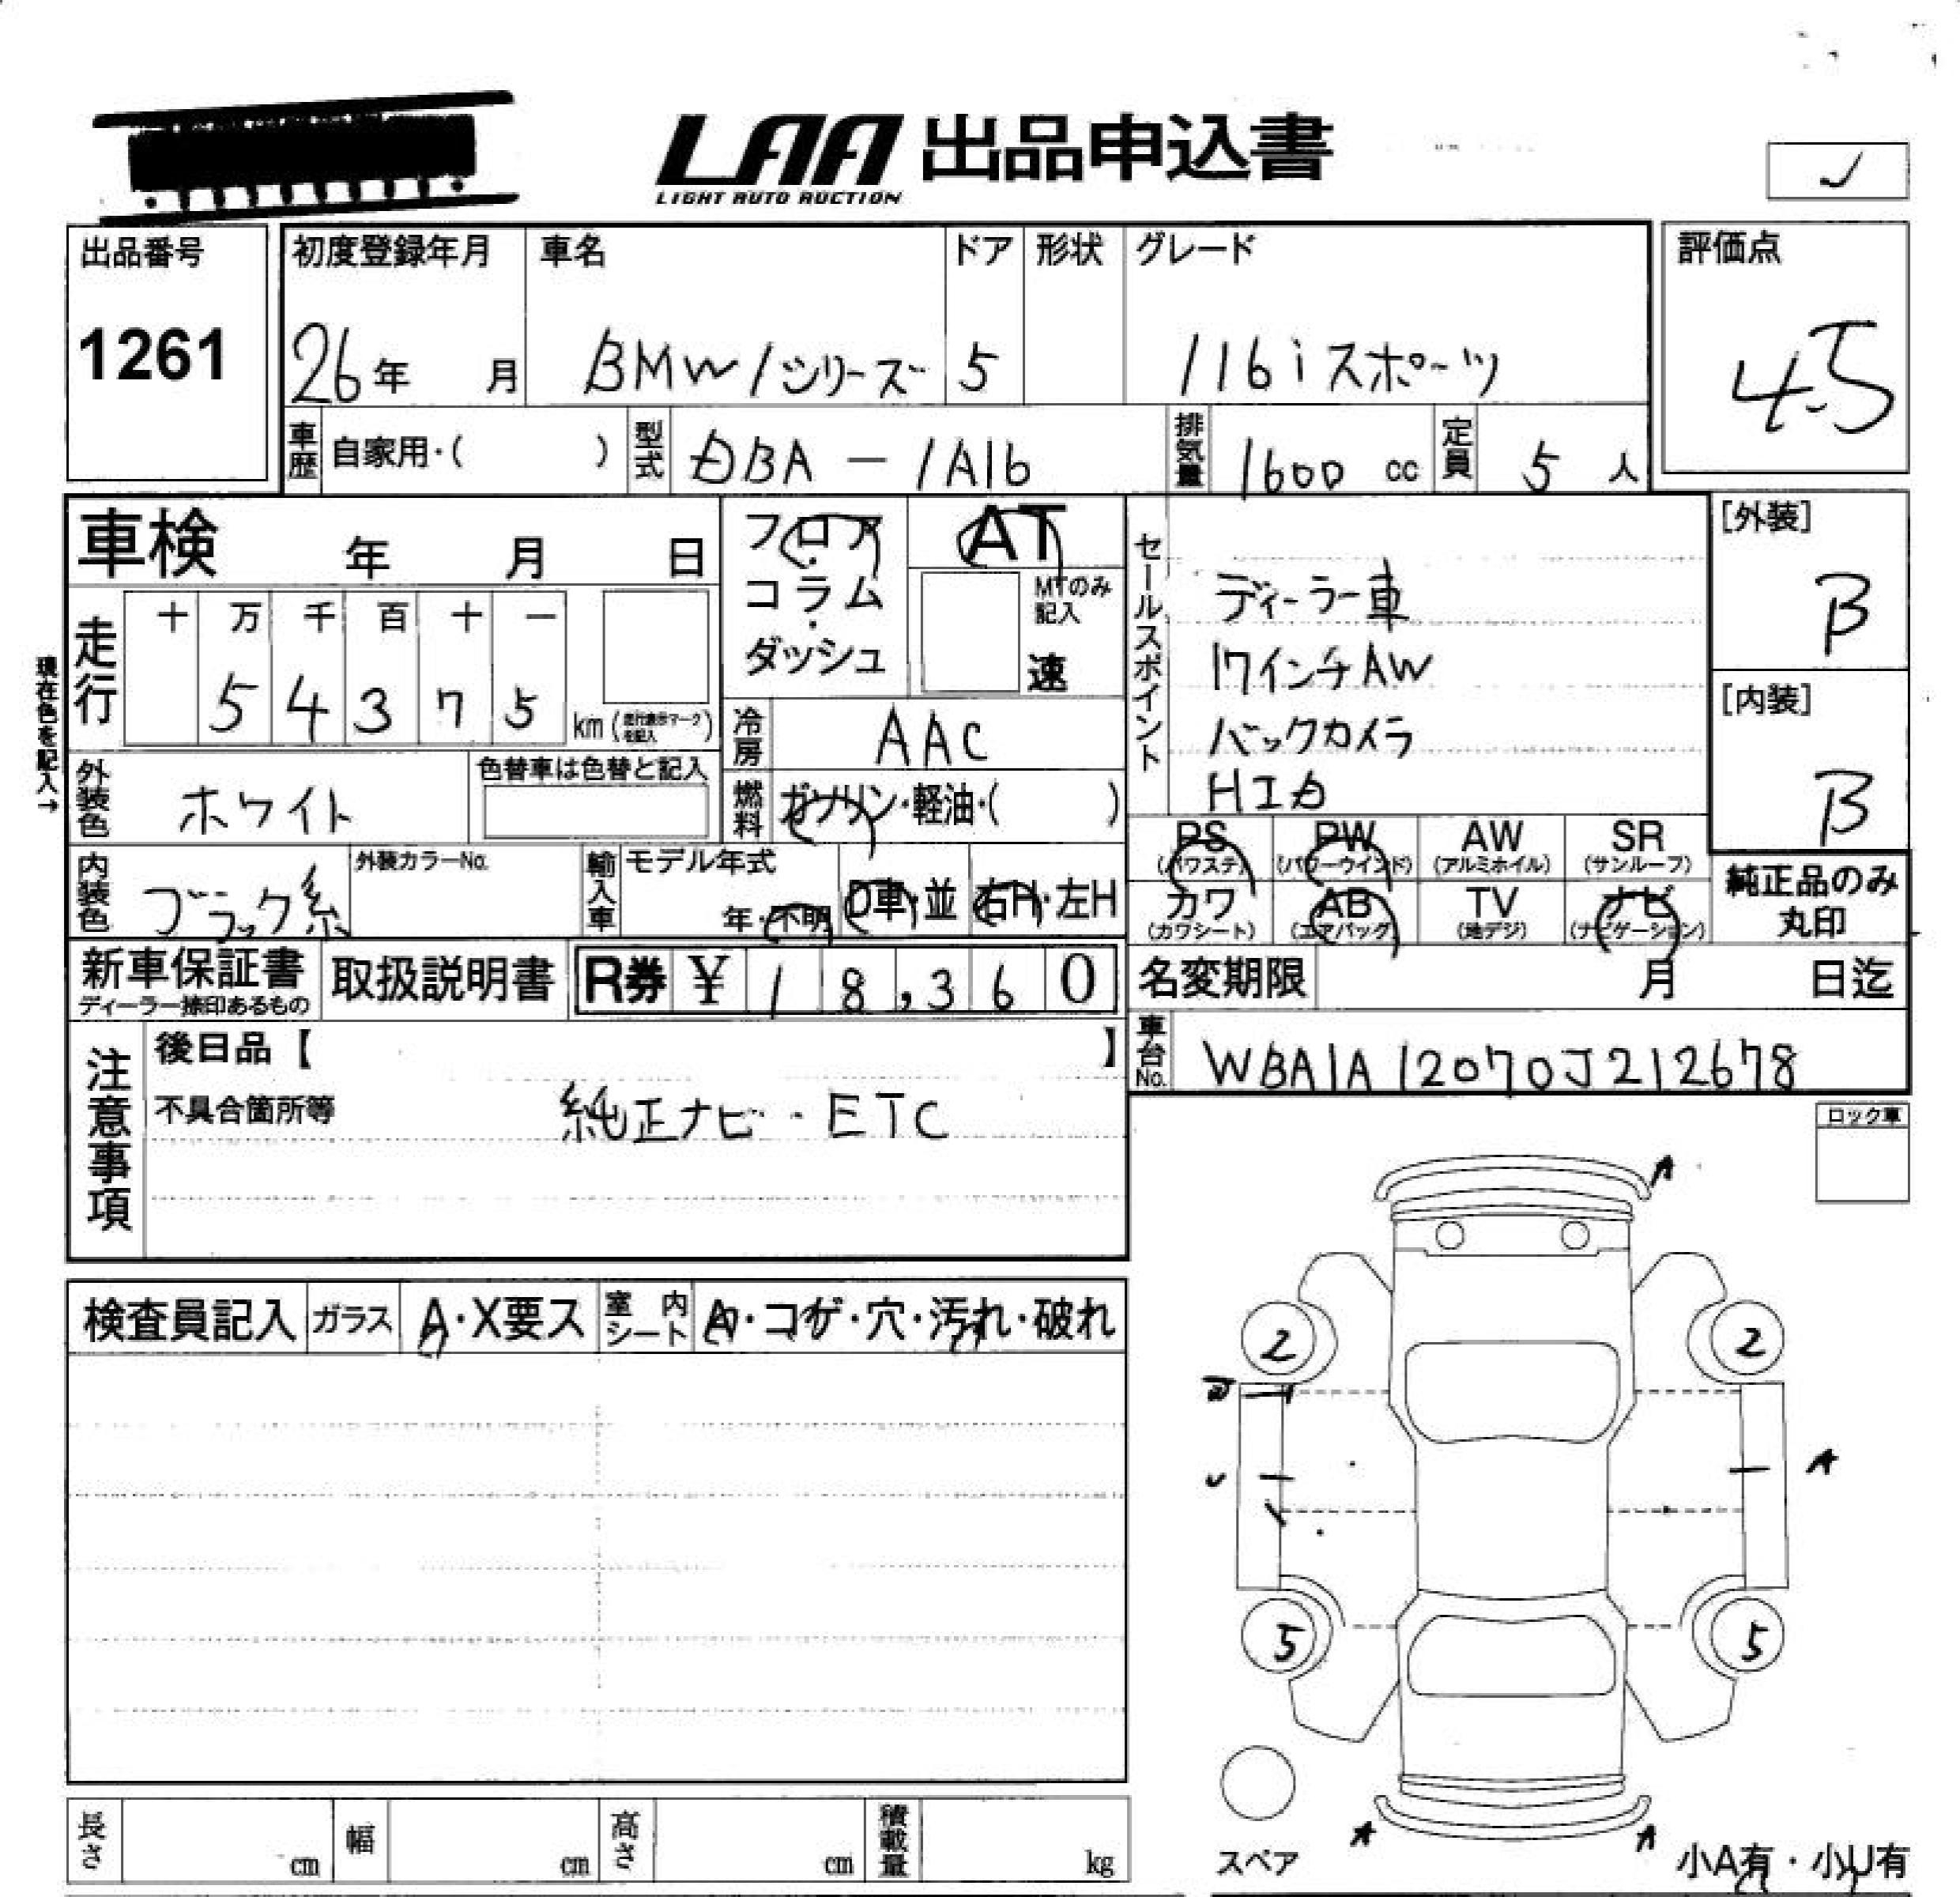 LAA 出品申込書
LIGHT AUTO AUCTION
出品番号 初度登録年月 車名 ドア 形状 グレード 評価点
1261 26年 月 BMW1シリーズ 5 116iスポーツ 4.5
車歴 自家用・( ) 型式 DBA - 1A16 排気量 1600 cc 定員 5 人
車検 年 月 日
フロア・コラム・ダッシュ
AT
MTのみ記入
速
セールスポイント
ディーラー車
17インチAW
バックカメラ
HID
[外装]
B
[内装]
B
現在色を記入→
走行 十 万 千 百 十 一
5 4 3 7 5 km (走行表示マークを記入)
冷房 AAC
外装色 ホワイト 色替車は色替と記入
燃料 ガソリン・軽油・( )
PS (パワステ) PW (パワーウインド) AW (アルミホイル) SR (サンルーフ)
カワ (カワシート) AB (エアバッグ) TV (地デジ) ナビ (ナビゲーション)
純正品のみ
丸印
内装色 ブラック系 外装カラーNo. 輸入車 モデル年式 年・不明 D車・並 右H・左H
新車保証書 ディーラー捺印あるもの 取扱説明書 R券 ¥ 18,360
名変期限 月 日迄
車台No. WBA1A12070J212678
注意事項
後日品【 】
不具合箇所等 純正ナビ・ETC
ロック車
検査員記入 ガラス A・X要ス 室内シート A・コゲ・穴・汚れ・破れ
A
2 2
U A
5 5
A A
スペア
小A有・小U有
長さ cm 幅 cm 高さ cm 積載量 kg